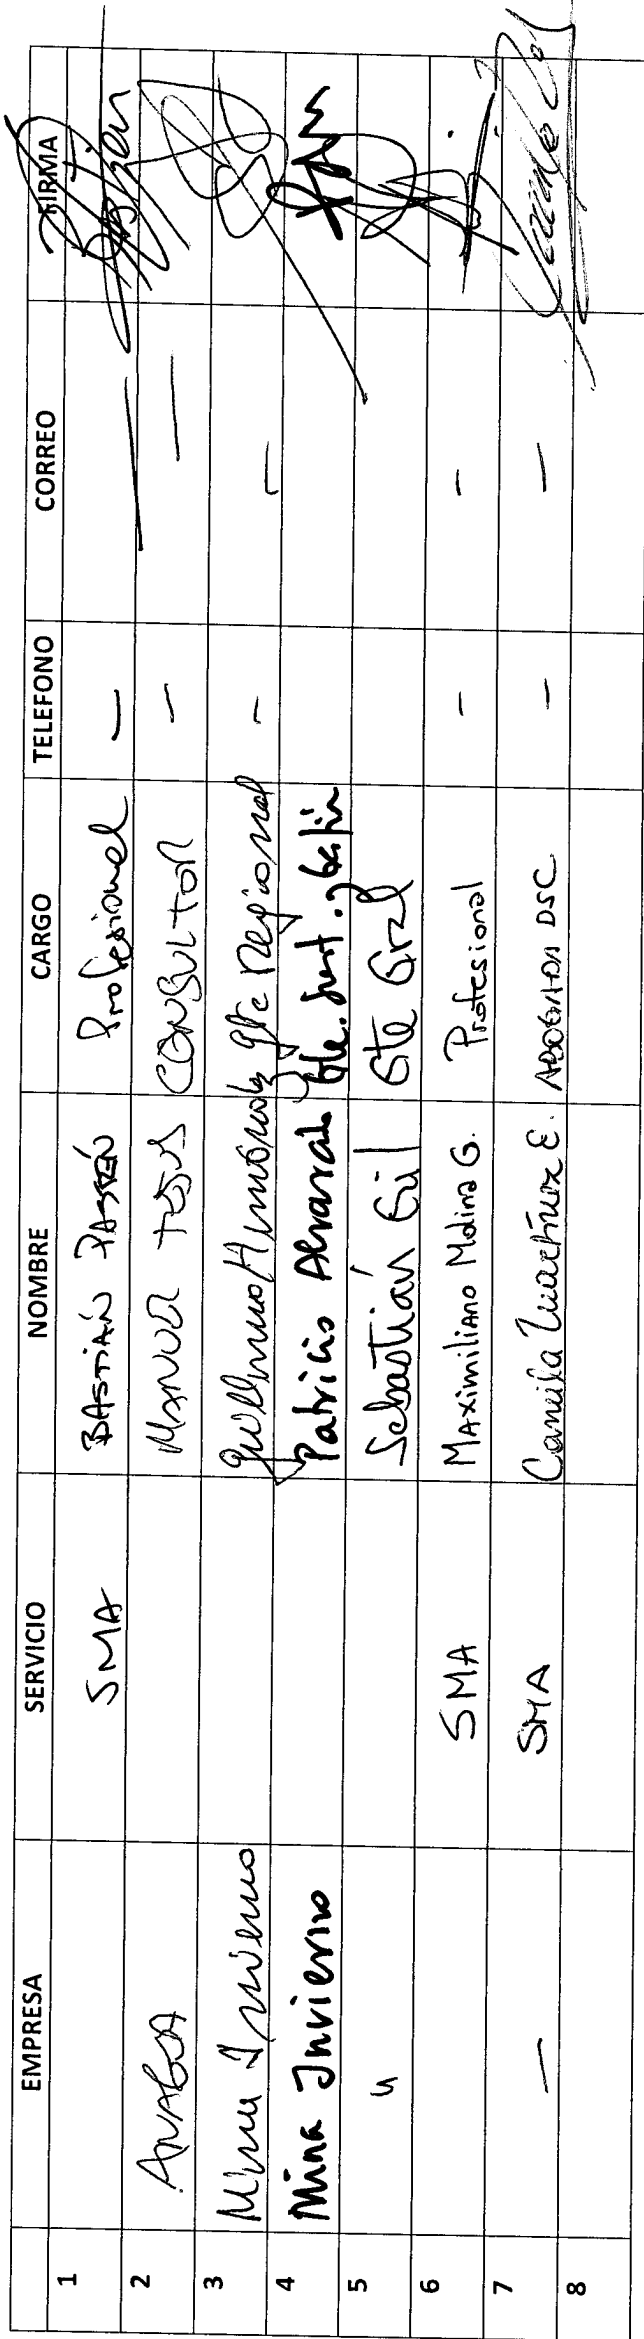 EMPRESA SERVICIO NOMBRE CARGO TELEFONO CORREO FIRMA
1 SMA BASTIÁN PASTÉN Profesional —
2 MANUEL CONSULTOR — —
3 Mina Invierno Gte Regional — —
4 Mina Invierno Patricio Alvarado Gte.
5 " Sebastián Gil Gte Gral
6 SMA Maximiliano Molina G. Profesional - -
7 — SMA Camila Martínez E. ABOGADA DSC — —
8